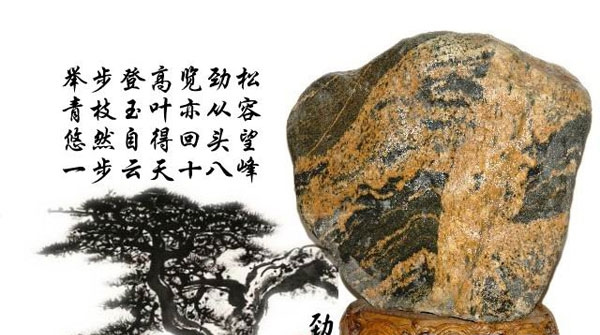 举步登高览劲松
青枝玉叶亦从容
悠然自得回头望
一步云天十八峰
劲